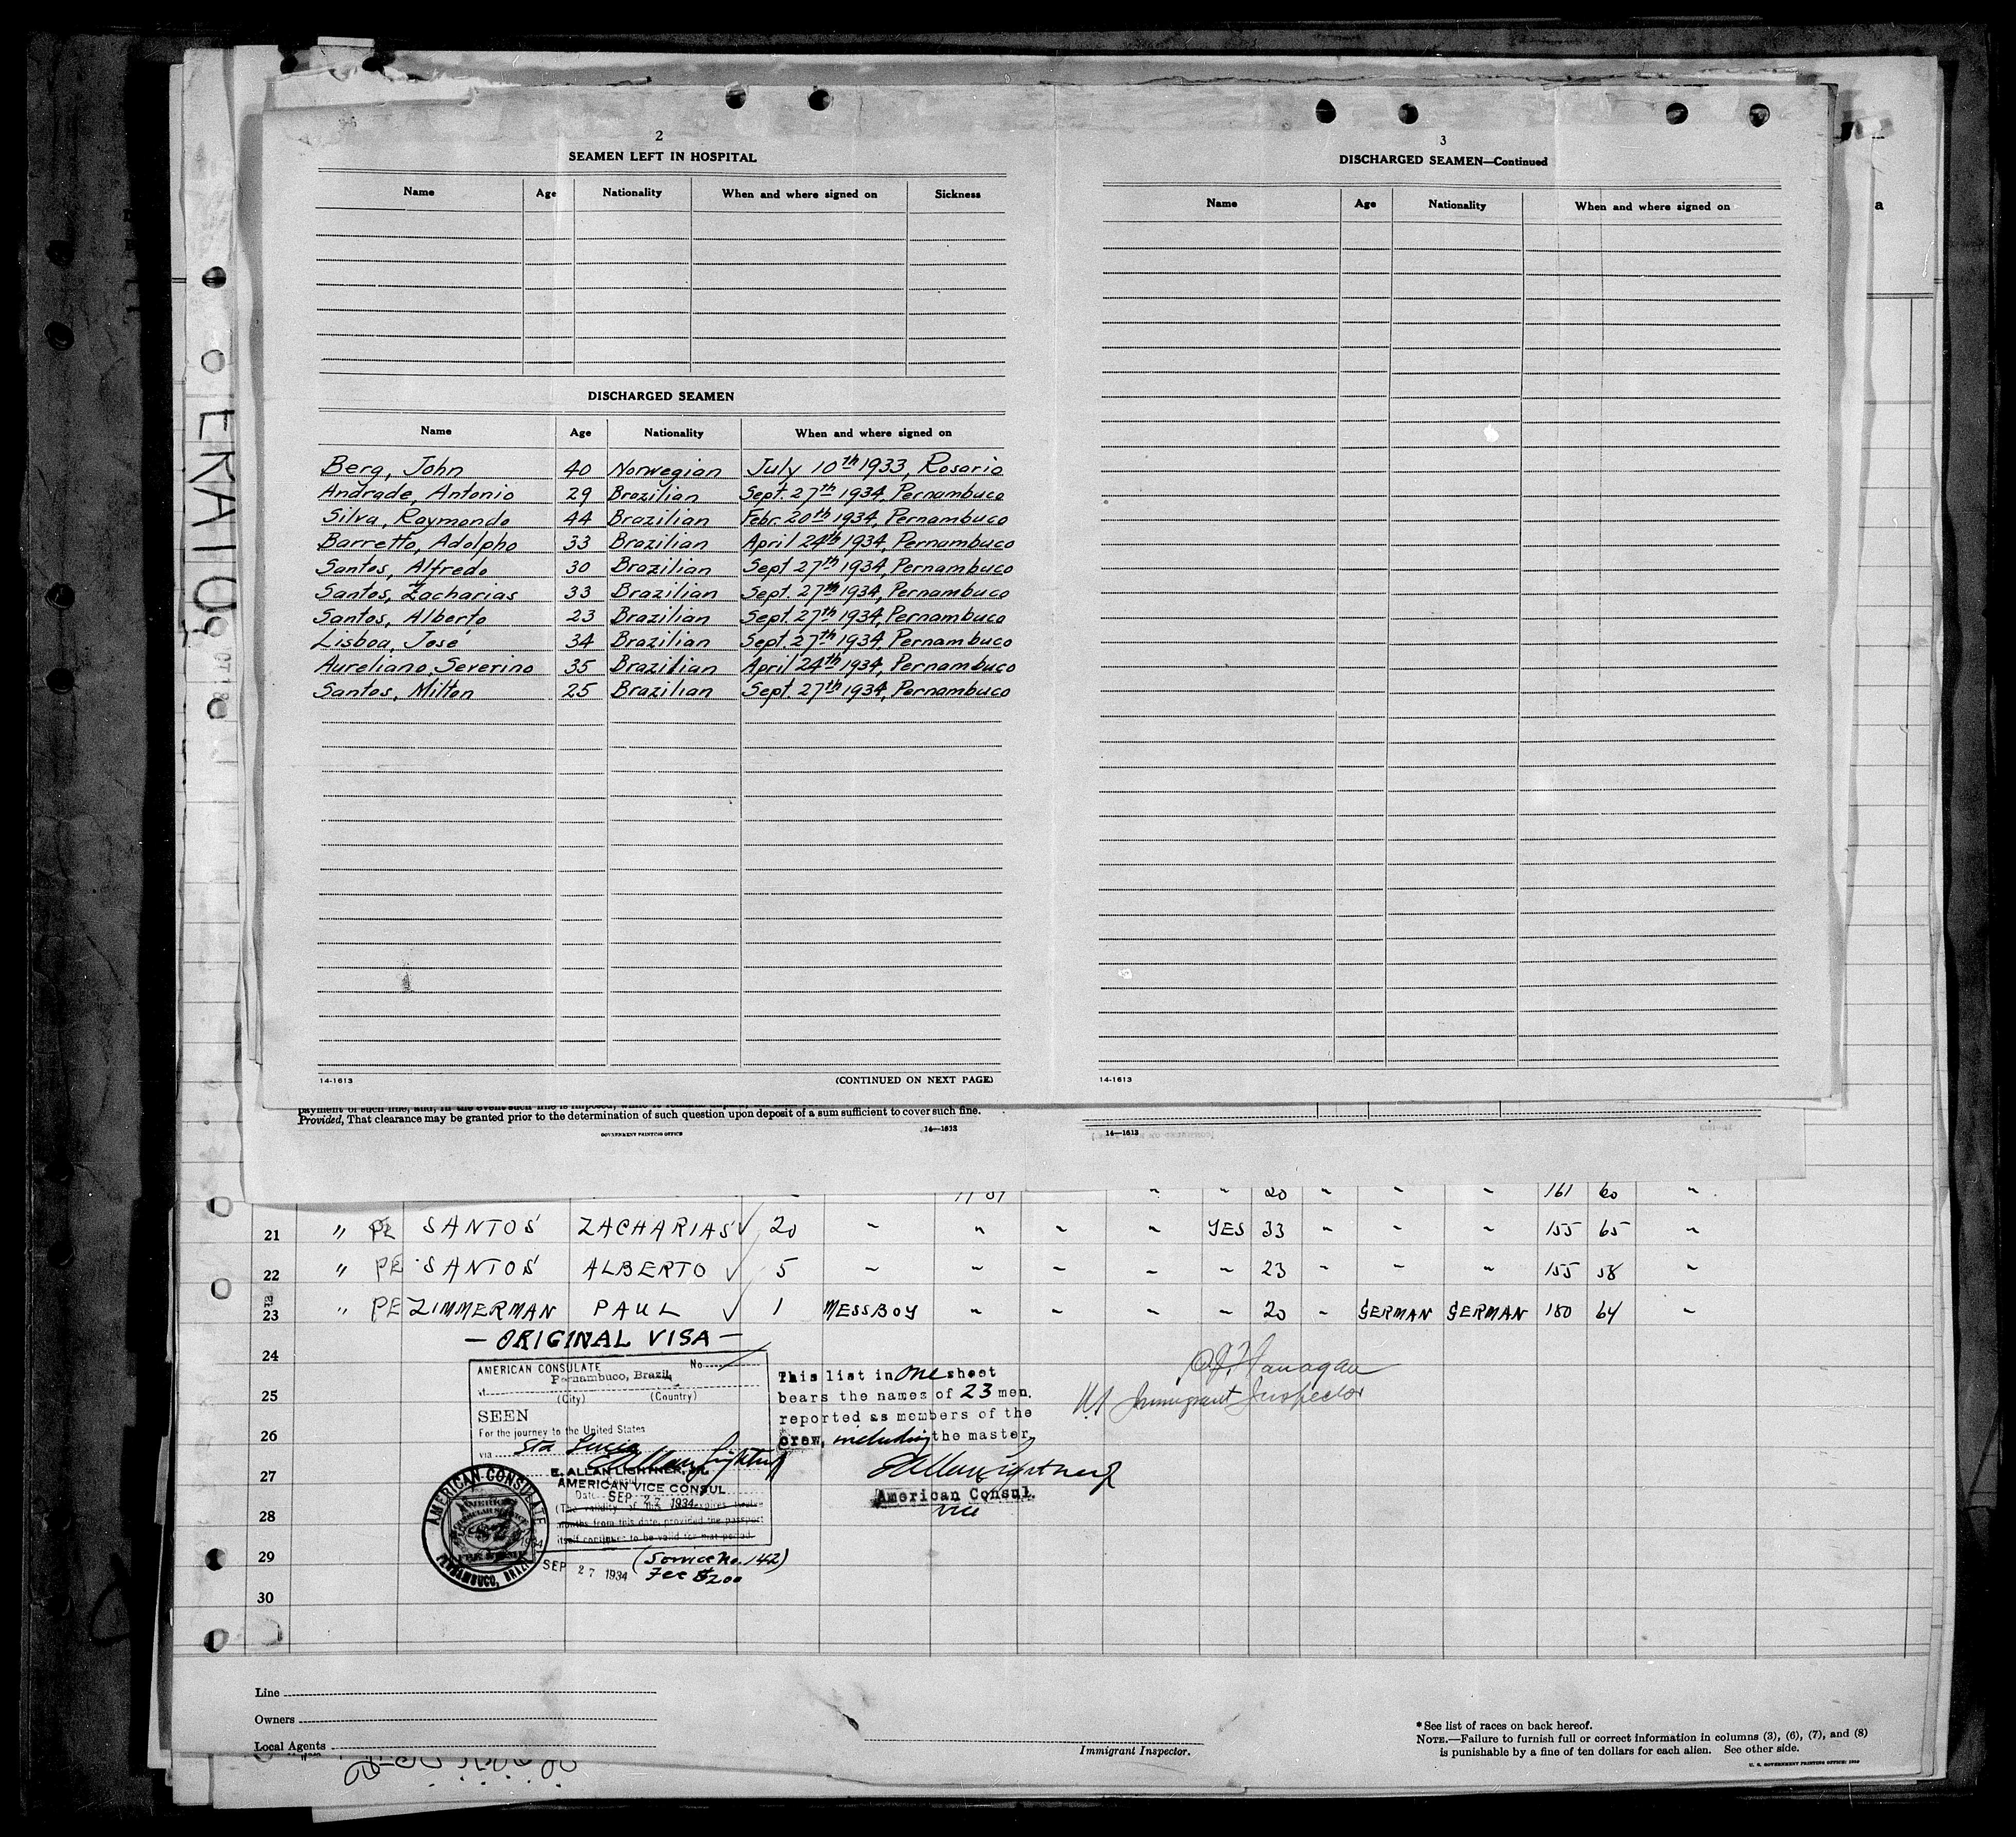 2
SEAMEN LEFT IN HOSPITAL
Name Age Nationality When and where signed on Sickness
DISCHARGED SEAMEN
Name Age Nationality When and where signed on
Berg, John 40 Norwegian July 10th 1933, Rosario
Andrade, Antonio 29 Brazilian Sept. 27th 1934, Pernambuco
Silva, Raymondo 44 Brazilian Febr. 20th 1934, Pernambuco
Barretto, Adolpho 33 Brazilian April 24th 1934, Pernambuco
Santos, Alfredo 30 Brazilian Sept 27th 1934, Pernambuco
Santos, Zacharias 33 Brazilian Sept. 27th 1934, Pernambuco
Santos, Alberto 23 Brazilian Sept. 27th 1934, Pernambuco
Lisboa, José 34 Brazilian Sept. 27th 1934, Pernambuco
Aureliano, Severino 35 Brazilian April 24th 1934, Pernambuco
Santos, Milton 25 Brazilian Sept. 27th 1934, Pernambuco
14-1613 (CONTINUED ON NEXT PAGE)
3
DISCHARGED SEAMEN—Continued
Name Age Nationality When and where signed on
14-1613
a
payment of such fine, and, in the event such fine is imposed, while it remains unpaid,
Provided, That clearance may be granted prior to the determination of such question upon deposit of a sum sufficient to cover such fine.
GOVERNMENT PRINTING OFFICE 14—1613
14—1613
" " 20 " " " 161 60 "
21 " PE SANTOS ZACHARIAS ✓ 20 " " " " YES 33 " " " 155 65 "
22 " PE SANTOS ALBERTO ✓ 5 " " " " " 23 " " " 155 58 "
23 " PE ZIMMERMAN PAUL ✓ 1 MESSBOY " " " " 20 " GERMAN GERMAN 180 64 "
— ORIGINAL VISA —
24
25
26
27
28
29
30
AMERICAN CONSULATE No.
at Pernambuco, Brazil
(City) (Country)
SEEN
For the journey to the United States
via Sta Lucia
E Allan Lightner Jr
E. ALLAN LIGHTNER, JR.
AMERICAN VICE CONSUL
Date SEP 27 1934
(The validity of this expires twelve
months from this date, provided the passport
itself continues to be valid for that period.
AMERICAN CONSULATE
PERNAMBUCO, BRAZIL
SEP 27 1934
(Service No. 142)
Fee $2.00
This list in One sheet
bears the names of 23 men,
reported as members of the
crew, including the master.
E Allan Lightner Jr
American Consul.
vice
O.J. Flanagan
US Immigrant Inspector
Line
Owners
Local Agents
Immigrant Inspector.
*See list of races on back hereof.
NOTE.—Failure to furnish full or correct information in columns (3), (6), (7), and (8)
is punishable by a fine of ten dollars for each alien. See other side.
U. S. GOVERNMENT PRINTING OFFICE: